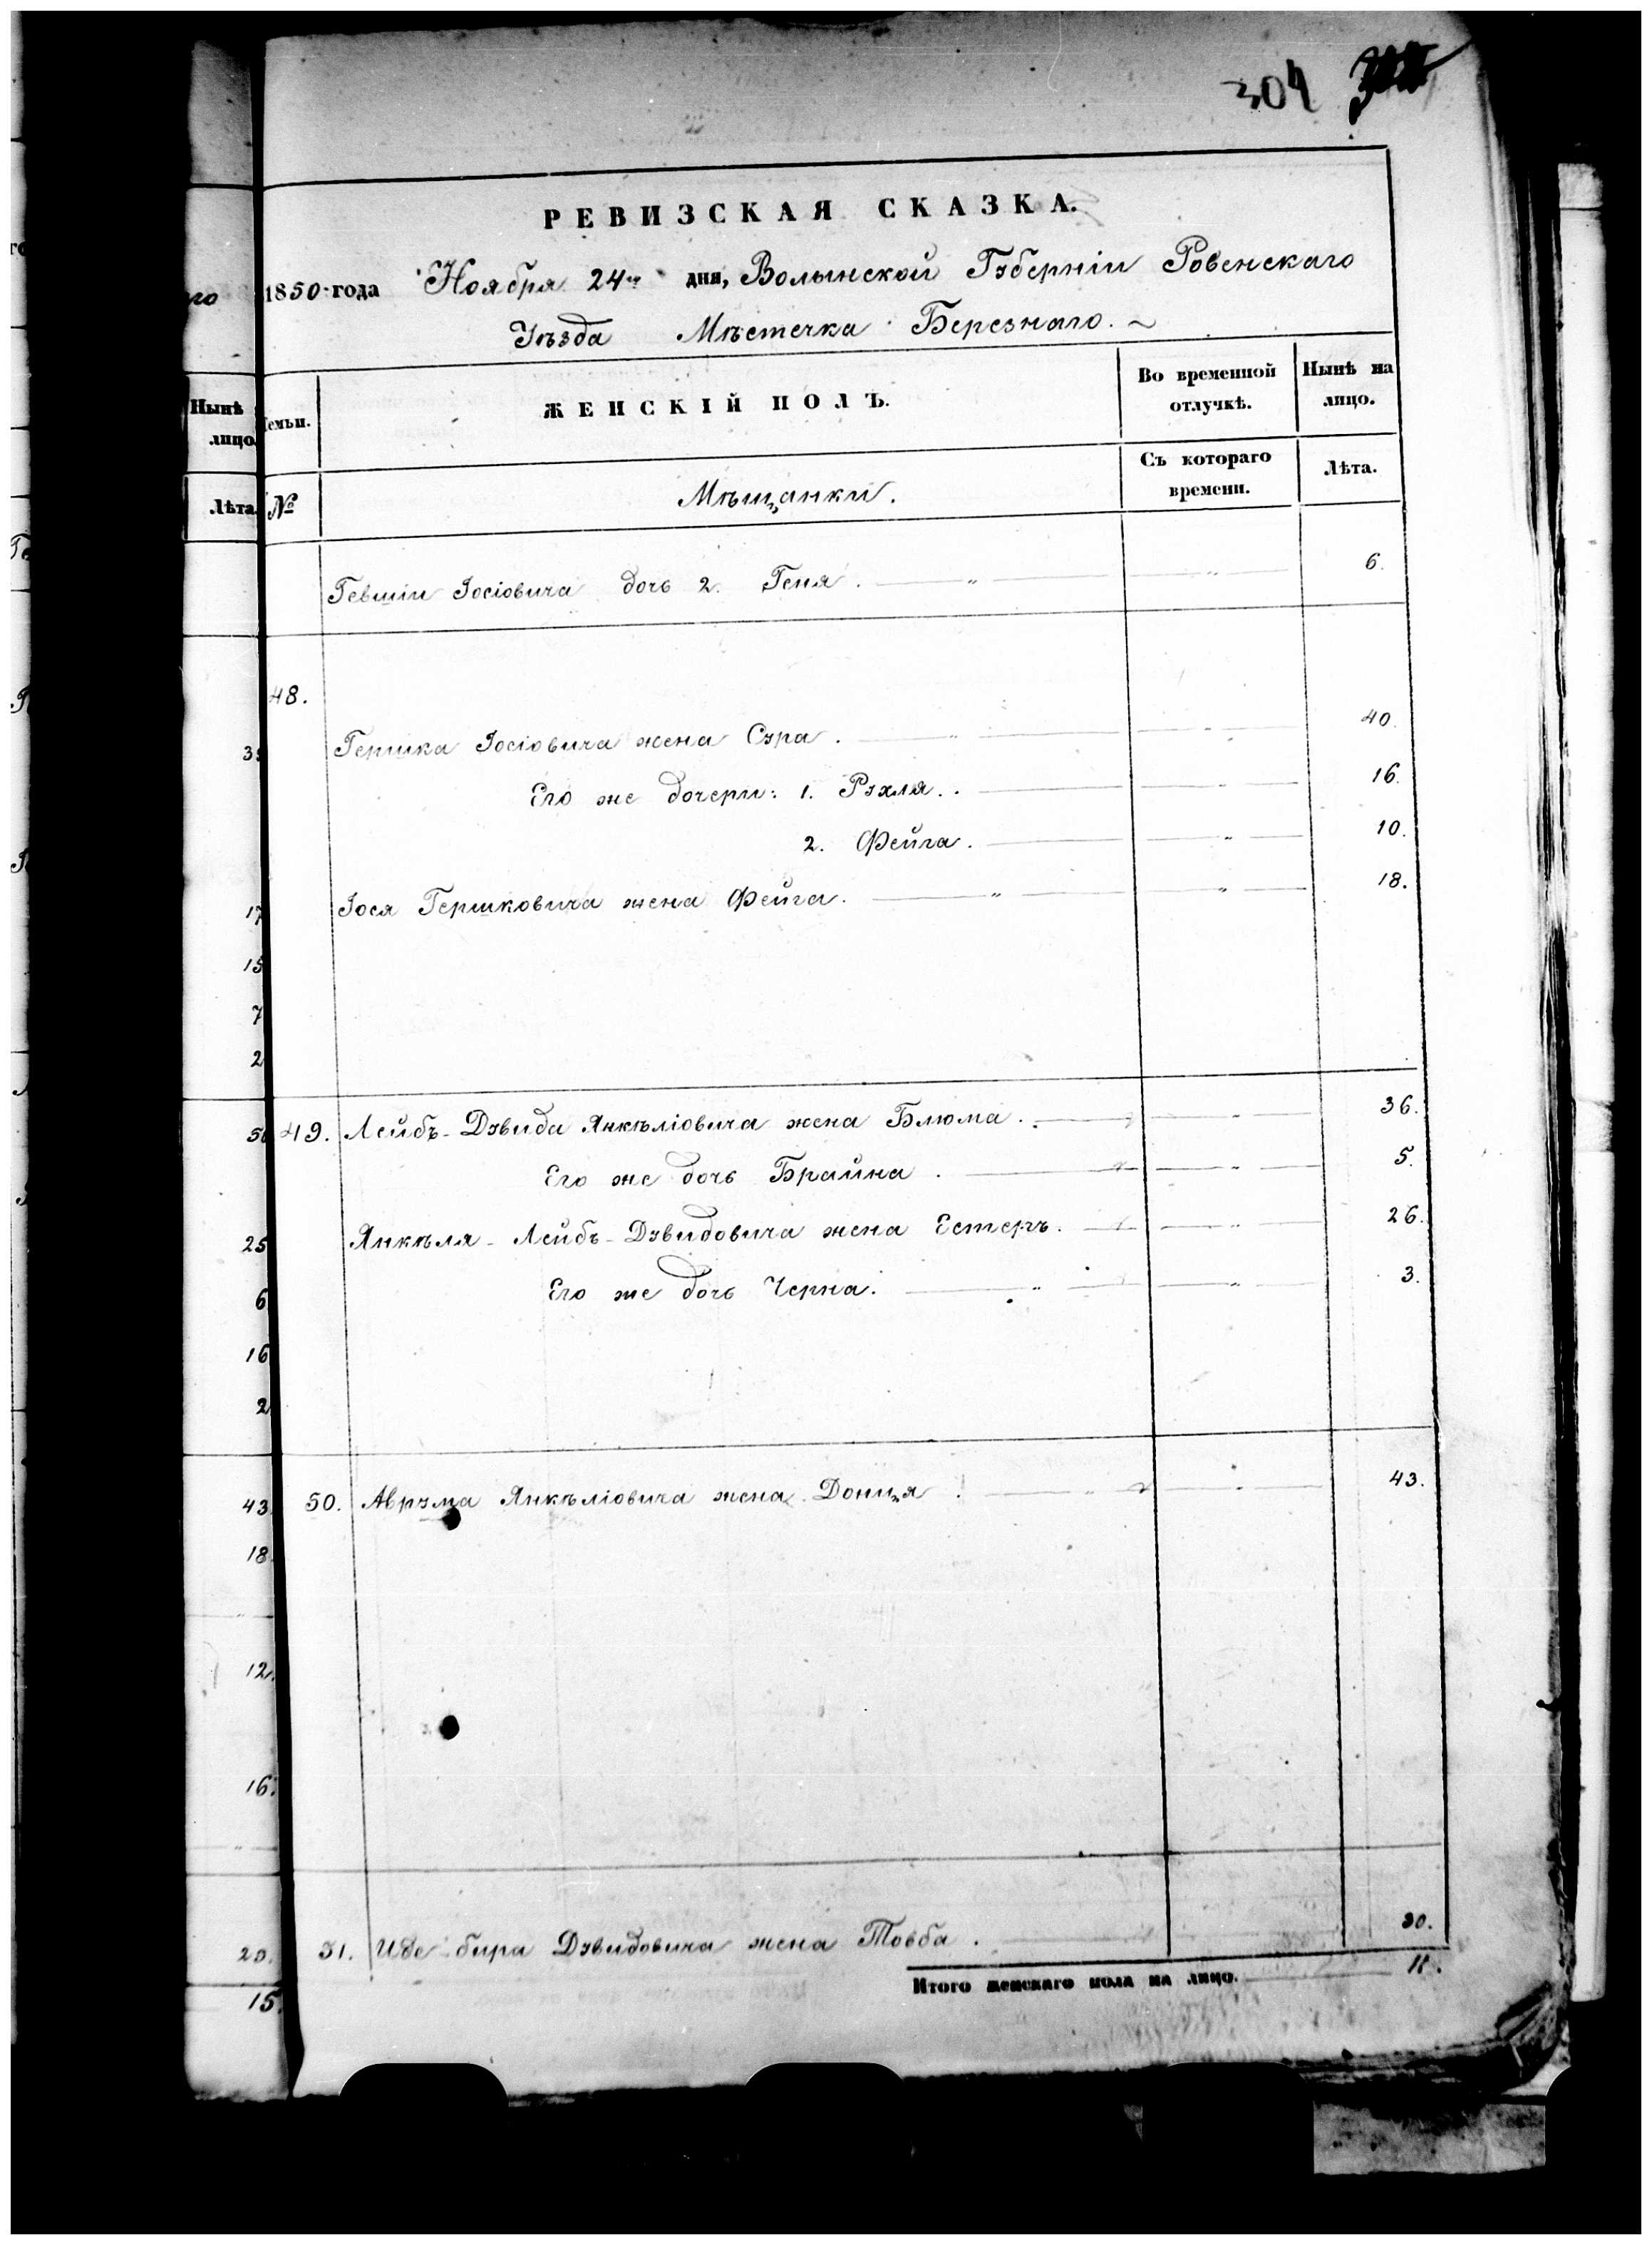 304
РЕВИЗСКАЯ СКАЗКА.
1850 года Ноября 24го дня, Волынской Губерніи Ровенскаго
Уѣзда Мѣстечка Березнаго. ~
Нынѣ
лицо.
Лѣта.
Семьи.
№
ЖЕНСКІЙ ПОЛЪ.
Во временной
отлучкѣ.
Нынѣ на
лицо.
Мѣщанки.
Съ котораго
времени.
Лѣта.
Гевшіи Іосіовича дочь 2. Геня. 6.
48.
Гершка Іосіовича жена Сура. 40.
Его же дочери: 1. Рухля. 16.
2. Фейга. 10.
17 Іося Гершковича жена Фейга. 18.
15
7
2
49. Лейбъ-Дувида Янкѣліовича жена Блюма. 36.
Его же дочь Брайна. 5.
25 Янкѣля-Лейбъ-Дувидовича жена Естеръ. 26.
6 Его же дочь Черна. 3.
16
2
43 50. Аврума Янкѣліовича жена Донця. 43.
18
12.
16.
51. Дувидовича жена Товба. 30.
Итого женскаго пола на лицо. 11.
15.